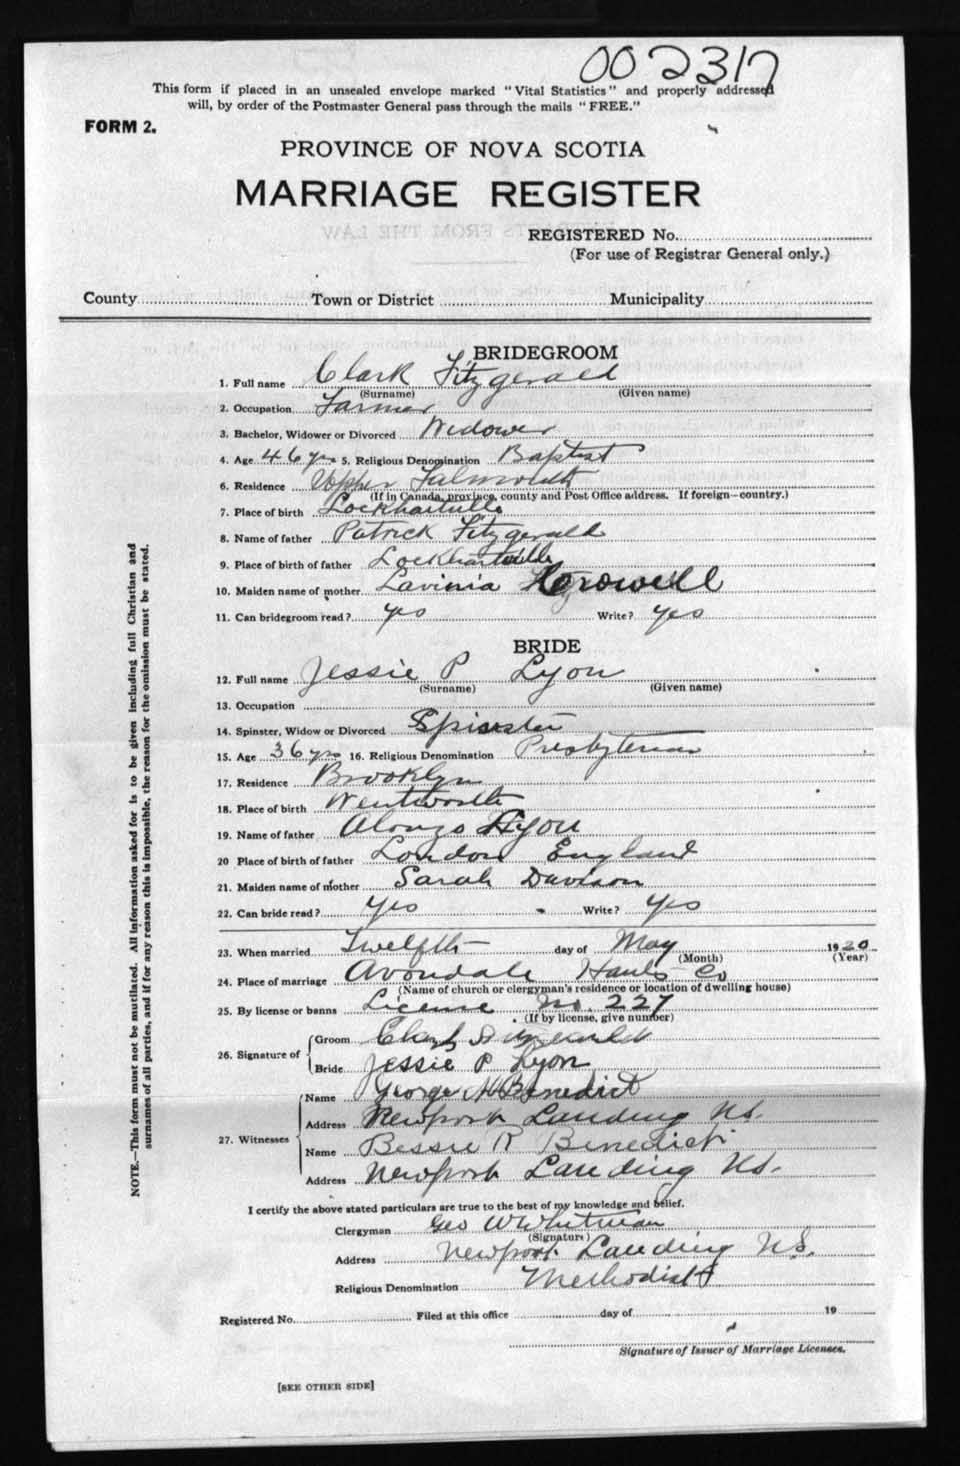 002317
This form if placed in an unsealed envelope marked "Vital Statistics" and properly addressed
will, by order of the Postmaster General pass through the mails "FREE."
FORM 2.
PROVINCE OF NOVA SCOTIA
MARRIAGE REGISTER
EXTRACTS FROM THE LAW
REGISTERED No.
(For use of Registrar General only.)
County Town or District Municipality
BRIDEGROOM
1. Full name Clark Fitzgerald
(Surname) (Given name)
2. Occupation Farmer
3. Bachelor, Widower or Divorced Widower
4. Age 46 yrs 5. Religious Denomination Baptist
6. Residence Upper Falmouth
(If in Canada, province, county and Post Office address. If foreign—country.)
7. Place of birth Lockhartville
8. Name of father Patrick Fitzgerald
9. Place of birth of father Lockhartville
10. Maiden name of mother Lavinia Crowell
11. Can bridegroom read? yes Write? yes
BRIDE
12. Full name Jessie P Lyon
(Surname) (Given name)
13. Occupation
14. Spinster, Widow or Divorced Spinster
15. Age 36 yrs 16. Religious Denomination Presbyterian
17. Residence Brooklyn
18. Place of birth Wentworth
19. Name of father Alonzo Lyon
20 Place of birth of father London England
21. Maiden name of mother Sarah Davison
22. Can bride read? Yes Write? Yes
23. When married Twelfth day of May 1920
(Month) (Year)
24. Place of marriage Avondale Hants Co
(Name of church or clergyman's residence or location of dwelling house)
25. By license or banns License No. 227
(If by license, give number)
26. Signature of
Groom Clark Fitzgerald
Bride Jessie P Lyon
27. Witnesses
Name George H Benedict
Address Newport Landing N.S.
Name Bessie R Benedict
Address Newport Landing N.S.
I certify the above stated particulars are true to the best of my knowledge and belief.
Clergyman Geo W Whitman
(Signature)
Address Newport Landing N.S.
Religious Denomination Methodist
Registered No. Filed at this office day of 19
Signature of Issuer of Marriage Licenses.
[SEE OTHER SIDE]
NOTE.—This form must not be mutilated. All information asked for is to be given including full Christian and
surnames of all parties, and if for any reason this is impossible, the reason for the omission must be stated.